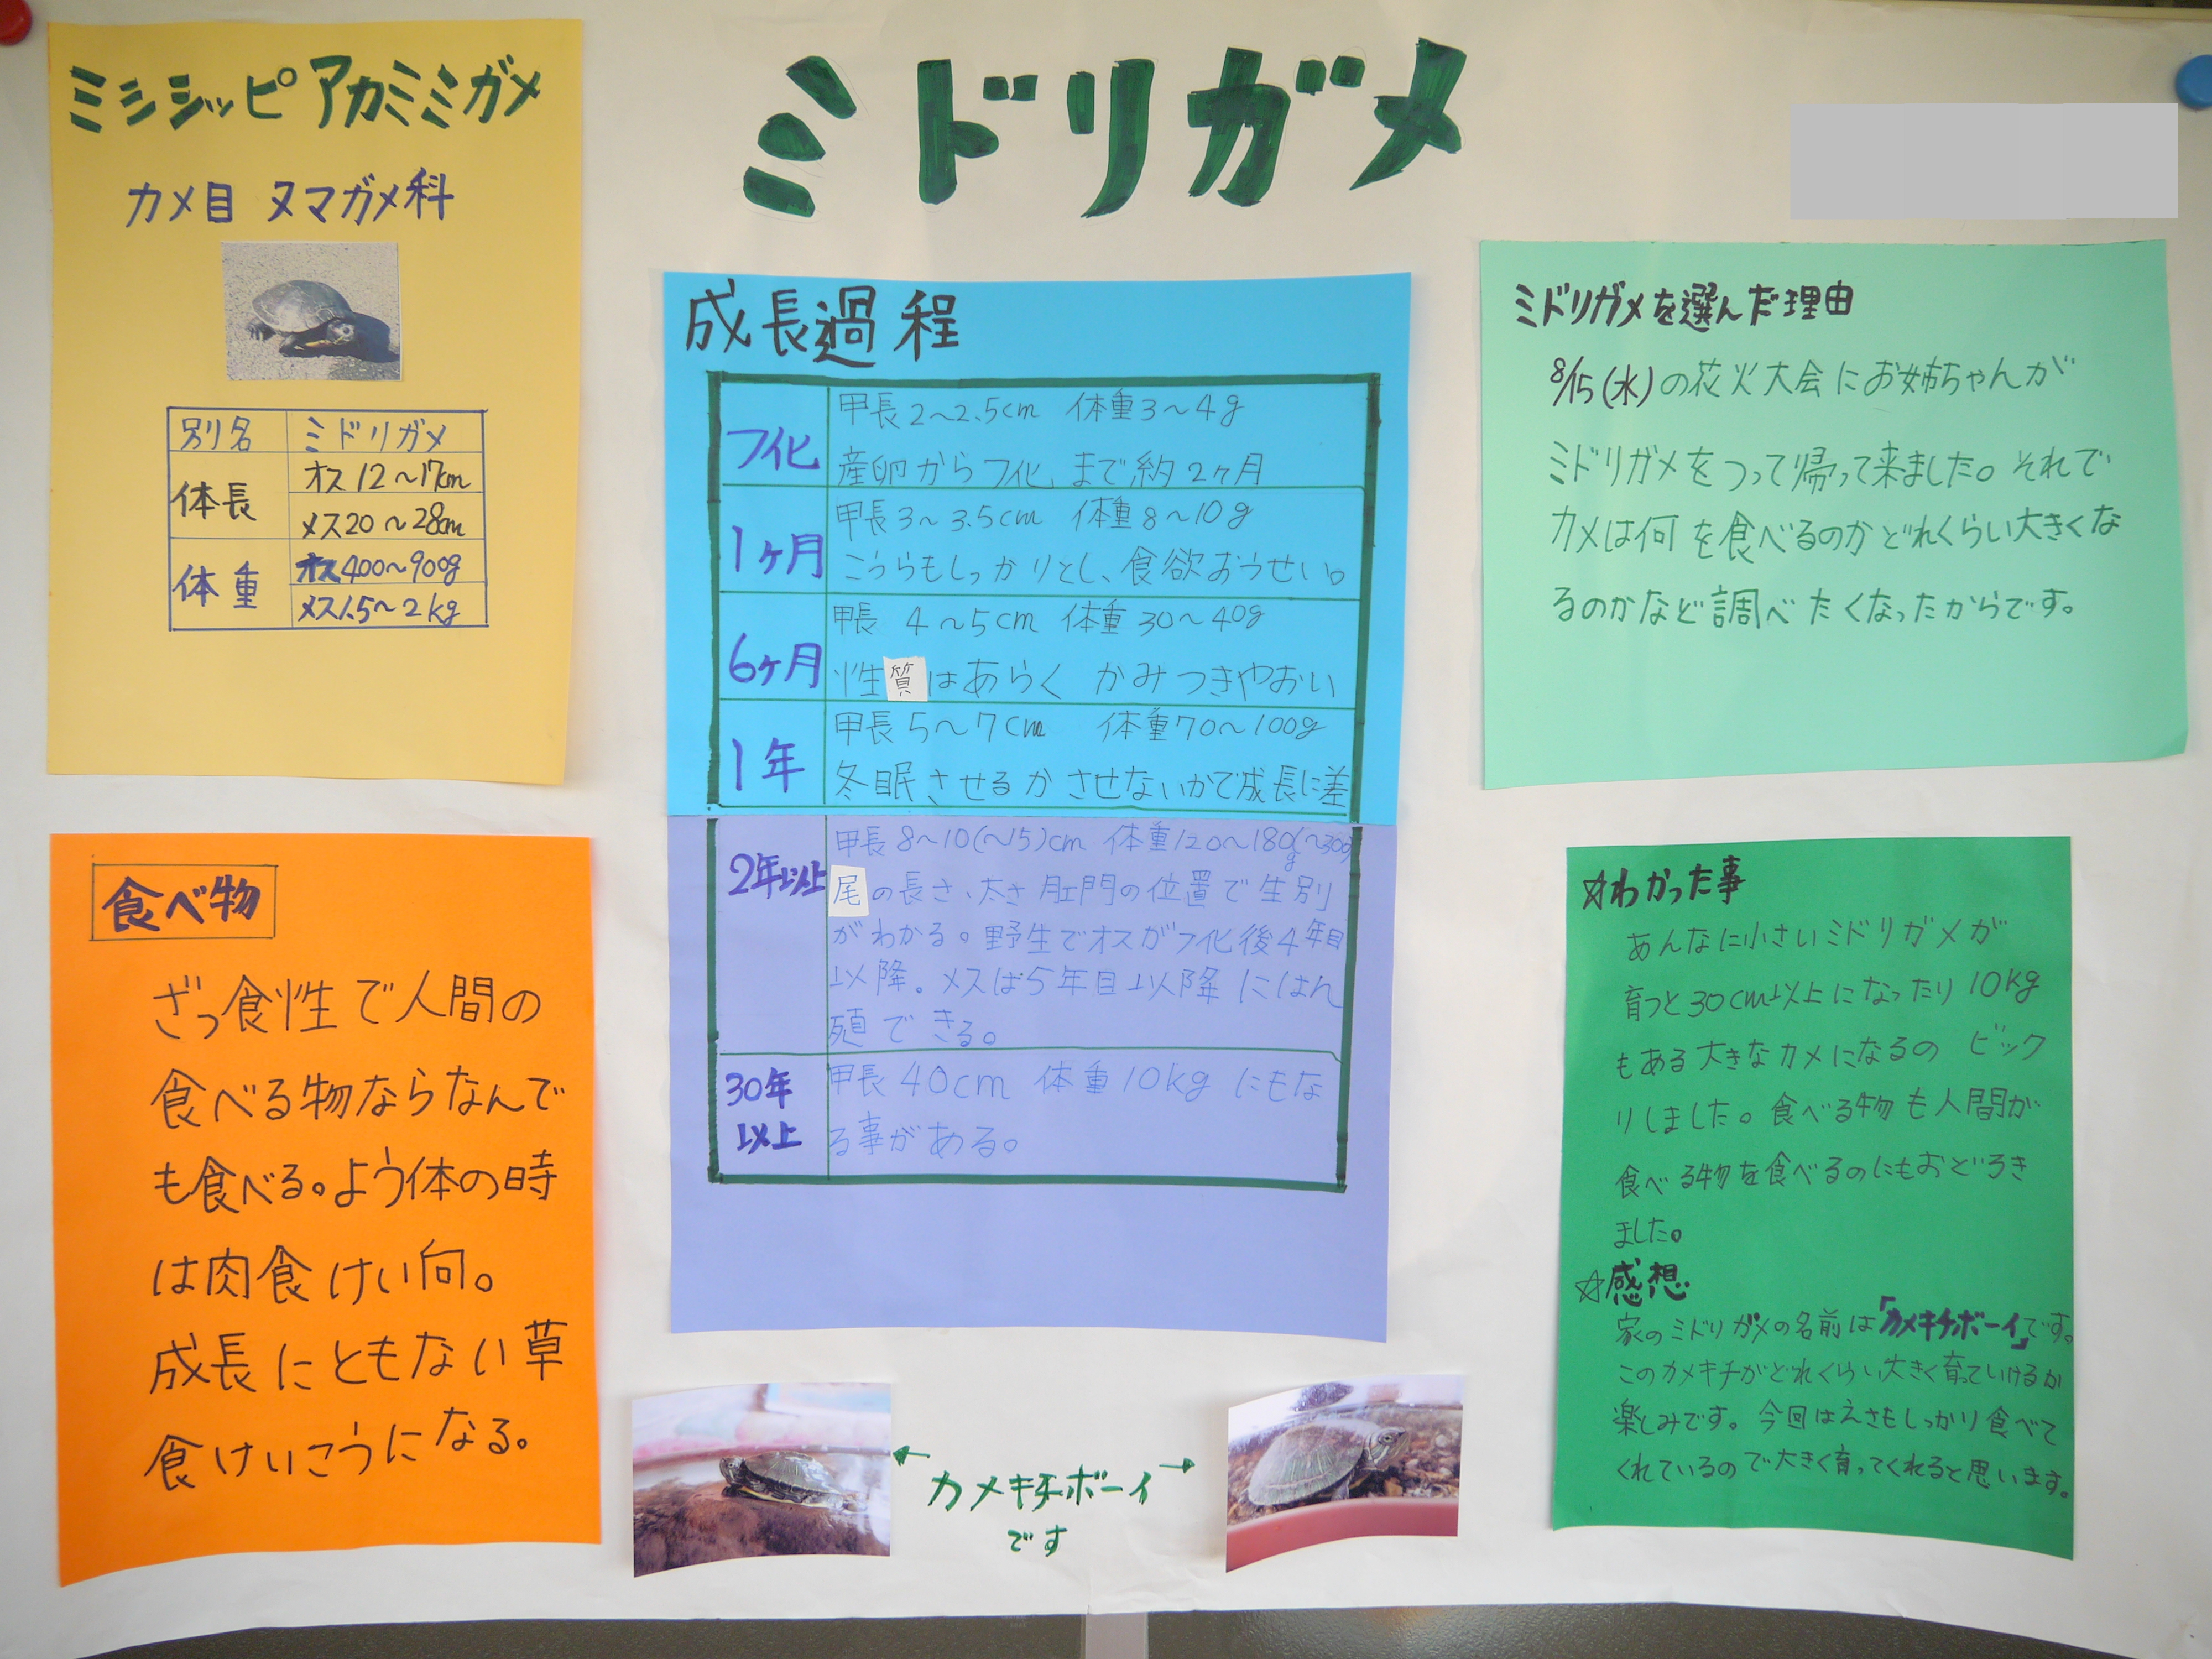 ミドリガメ
ミシシッピアカミミガメ
カメ目 ヌマガメ科
別名 ミドリガメ
体長 オス12〜17cm
メス20〜28cm
体重 オス400〜900g
メス1.5〜2kg
食べ物
ざっ食性で人間の
食べる物ならなんで
も食べる。よう体の時
は肉食けい向。
成長にともない草
食けいこうになる。
成長過程
フ化 甲長2〜2.5cm 体重3〜4g
産卵からフ化まで約2ヶ月
1ヶ月 甲長3〜3.5cm 体重8〜10g
こうらもしっかりとし、食欲おうせい。
6ヶ月 甲長 4〜5cm 体重30〜40g
性質はあらく かみつきやおい
1年 甲長5〜7cm 体重70〜100g
冬眠させるかさせないかで成長に差
2年以上 甲長8〜10(〜15)cm 体重120〜180g(〜300)
尾の長さ、太さ肛門の位置で生別
がわかる。野生でオスがフ化後4年目
以降。メスは5年目以降にはん
殖できる。
30年以上 甲長40cm 体重10kgにもな
る事がある。
カメキチボーイ
です
ミドリガメを選んだ理由
8/15(水)の花火大会にお姉ちゃんが
ミドリガメをつって帰って来ました。それで
カメは何を食べるのかどれくらい大きくな
るのかなど調べたくなったからです。
☆わかった事
あんなに小さいミドリガメが
育つと30cm以上になったり10kg
もある大きなカメになるのビック
りしました。食べる物も人間が
食べる物を食べるのにもおどろき
ました。
☆感想
家のミドリガメの名前は「カメキチボーイ」です。
このカメキチがどれくらい大きく育っていけるか
楽しみです。今回はえさもしっかり食べて
くれているので大きく育ってくれると思います。